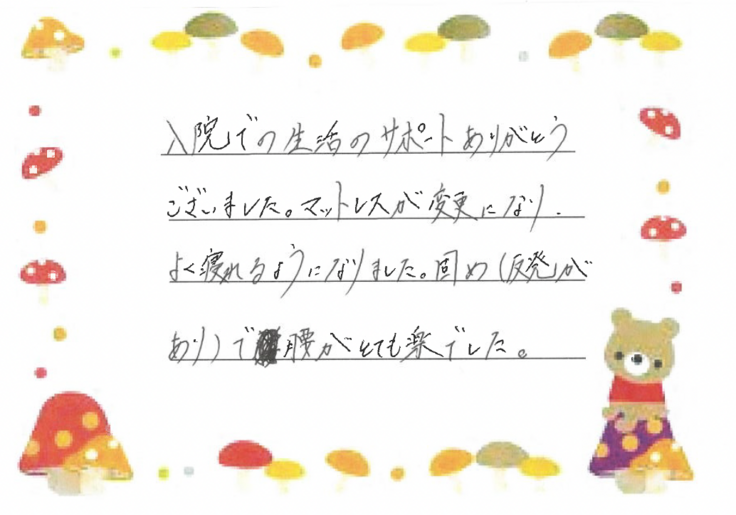 入院での生活のサポートありがとう
ございました。マットレスが変更になり、
よく寝れるようになりました。固め(反発が
あり)で腰がとても楽でした。